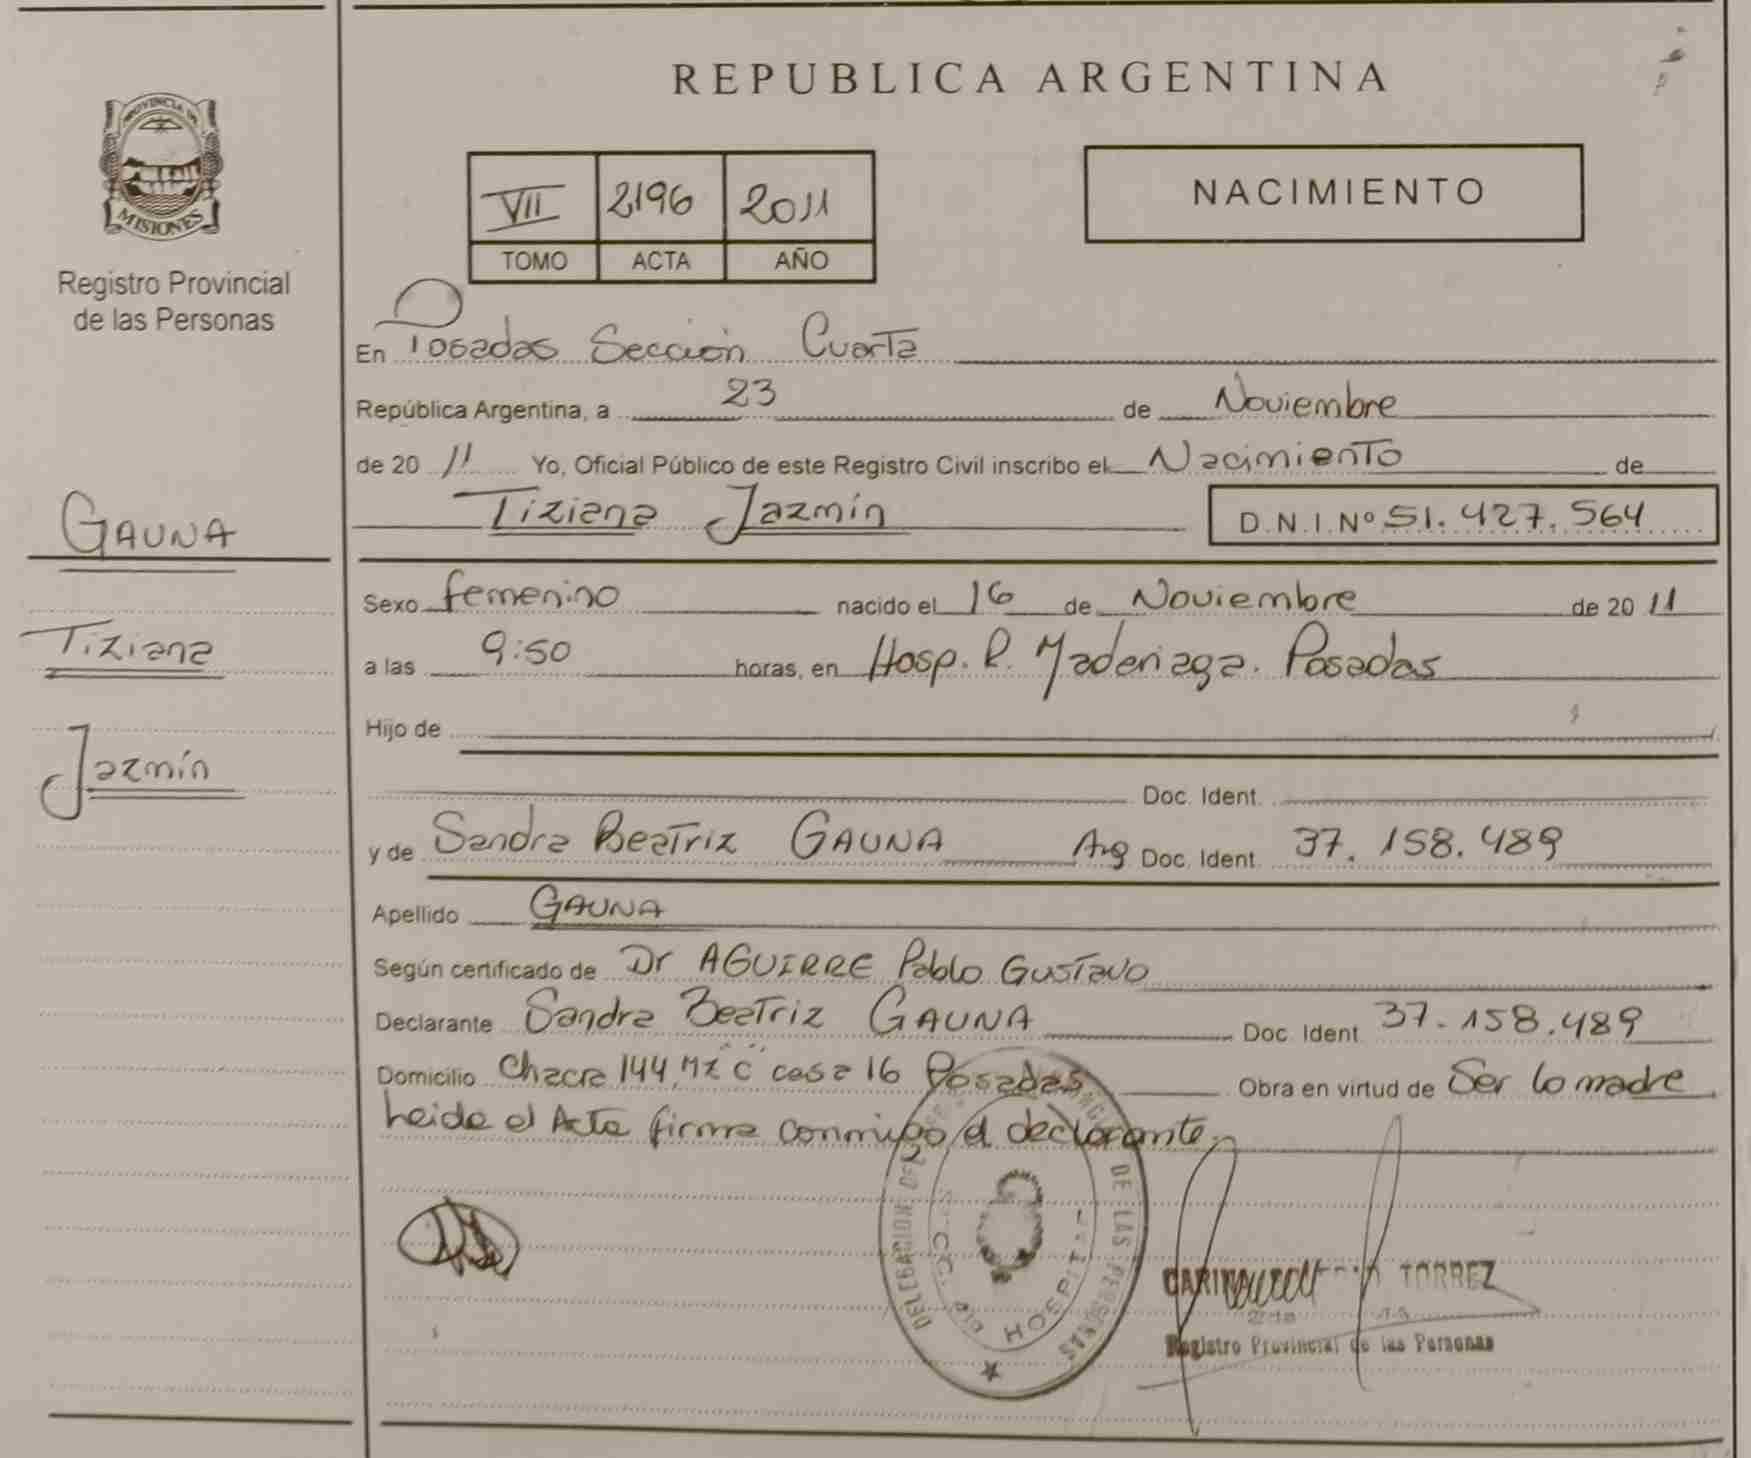 REPUBLICA ARGENTINA
PROVINCIA DE
MISIONES
Registro Provincial
de las Personas
VII 2196 2011
TOMO ACTA AÑO
NACIMIENTO
En Posadas Sección Cuarta
República Argentina, a 23 de Noviembre
de 20 11 Yo, Oficial Público de este Registro Civil inscribo el Nacimiento de
Tiziana Jazmín D.N.I.Nº 51.427.564
GAUNA
Tiziana
Jazmín
Sexo femenino nacido el 16 de Noviembre de 20 11
a las 9:50 horas, en Hosp. R. Madariaga. Posadas
Hijo de
Doc. Ident.
y de Sandra Beatriz GAUNA Arg Doc. Ident. 37.158.489
Apellido GAUNA
Según certificado de Dr AGUIRRE Pablo Gustavo
Declarante Sandra Beatriz GAUNA Doc. Ident. 37.158.489
Domicilio Chacra 144, Mz "C" casa 16 Posadas Obra en virtud de Ser la madre
Leida el Acta firma conmigo el declarante.
DELEGACION DEL DE LAS PERSONAS
HOSPITAL
TORREZ
Registro Provincial de las Personas